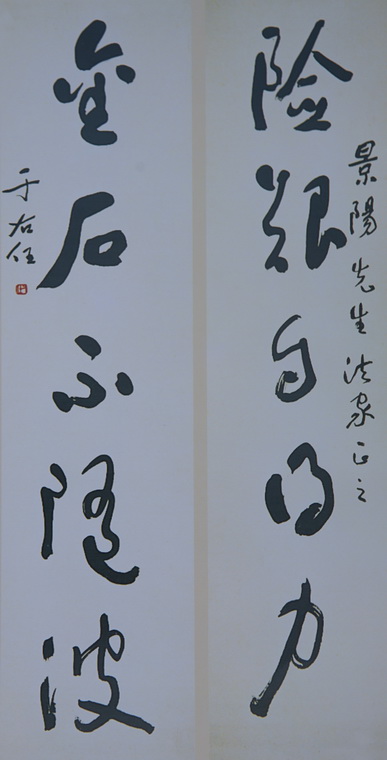 景陽先生法家正之
险艰自得力
金石不随波
于右任